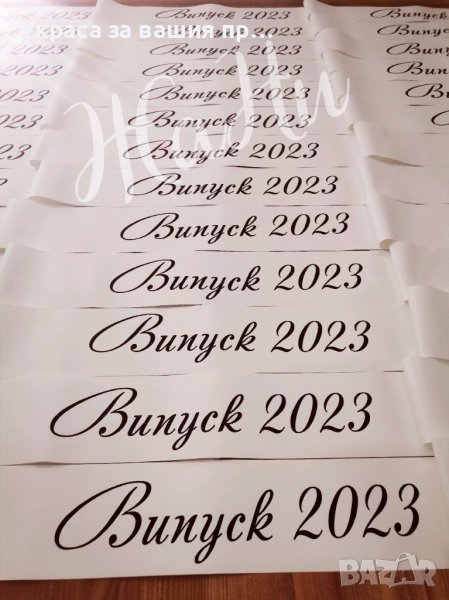 краса за вашия пр...
Випуск 2023
Випуск 2023
Випуск 2023
Випуск 2023
Випуск 2023
Випуск 2023
Випуск 2023
Випуск 2023
Випуск 2023
Випуск 2023
Випуск 2023
Випуск 2023
Випуск 2023
BAZAR